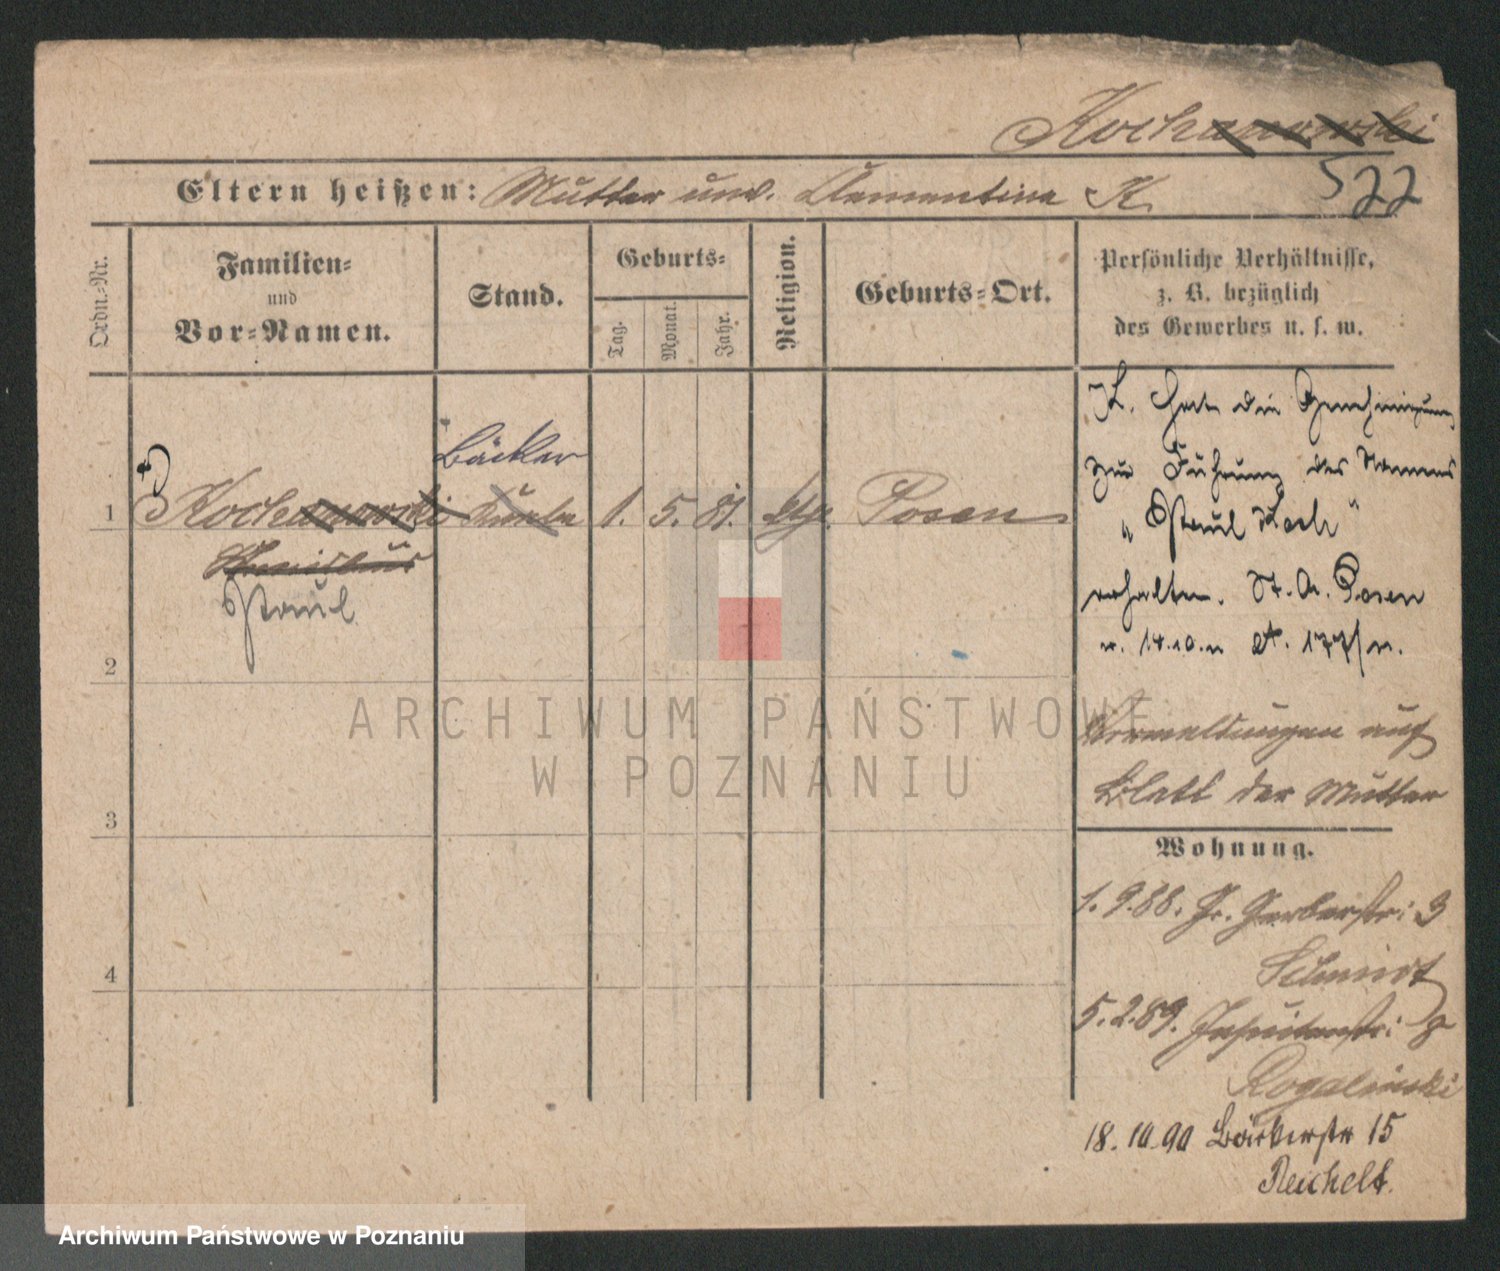 Kochanowski
Eltern heißen: Mutter unv. Clementina K.
522
Ordn.-Nr.
Familien-
und
Vor-Namen.
Stand.
Geburts-
Tag.
Monat.
Jahr.
Religion.
Geburts-Ort.
Persönliche Verhältnisse,
z. B. bezüglich
des Gewerbes u. s. w.
Bäcker
1 Kochanowski 1. 5. 81. Posen
Paul
2
3
4
K. hat die Genehmigung
zur Führung des Namens
„Paul Koch"
erhalten. St. A. Posen
Vermeldungen auf
Blatt der Mutter
Wohnung.
1. 9. 88. Gr. Gerberstr: 3
Schmidt
5. 2. 89. Jesuitenstr:
Rogalinski
18. 10. 90 Bäckerstr 15
Reichelt.
ARCHIWUM PAŃSTWOWE
W POZNANIU
Archiwum Państwowe w Poznaniu